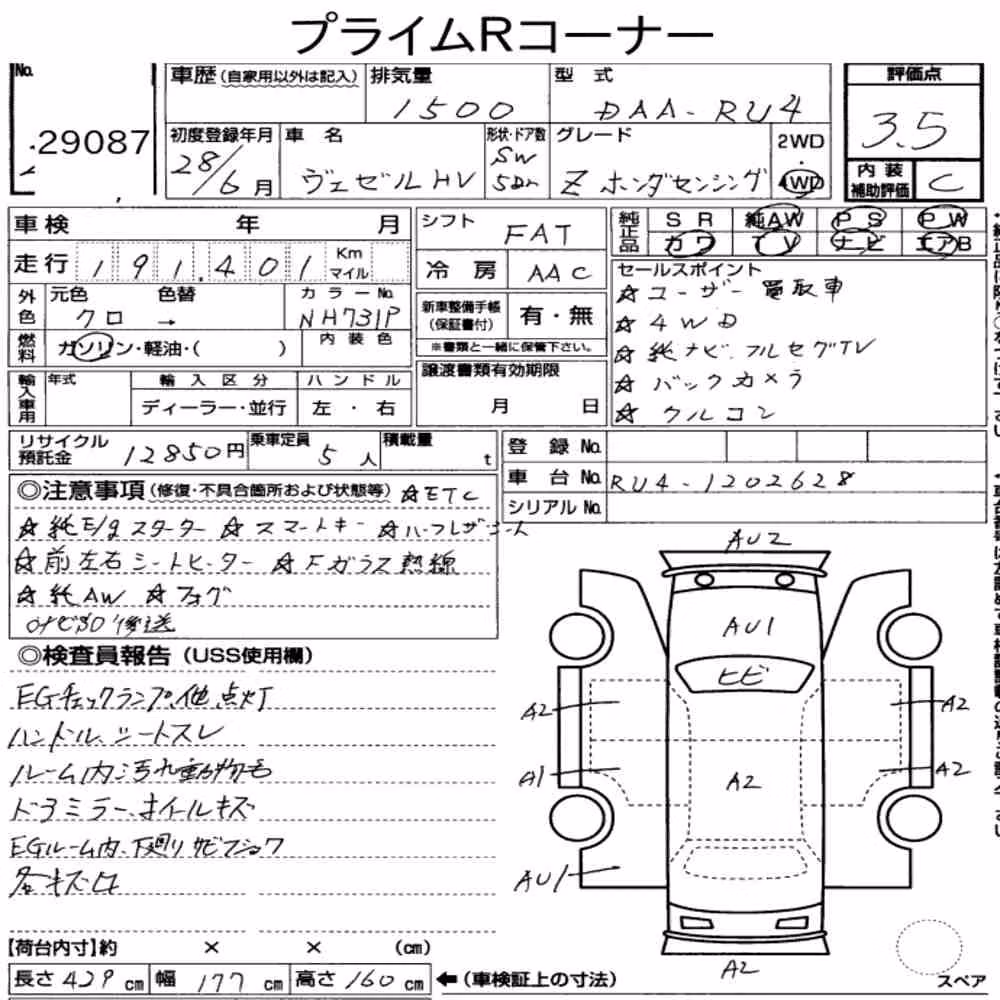 プライムRコーナー
No.
29087
車歴 (自家用以外は記入)
排気量
1500
型 式
DAA-RU4
評価点
3.5
初度登録年月
28/6 月
車 名
ヴェゼルHV
形状・ドア数
SW
5Dr
グレード
Z ホンダセンシング
2WD
・
4WD
内装
補助評価
C
車検 年 月
走行 191,401 Km マイル
シフト
FAT
純正品
SR 純AW PS PW
カワ TV ナビ エアB
冷房
AAC
外色
元色 色替
クロ →
カラーNo.
NH731P
燃料
ガソリン・軽油・( )
内装色
新車整備手帳
(保証書付)
有・無
※書類と一緒に保管下さい。
セールスポイント
☆ユーザー買取車
☆4WD
☆純ナビ、フルセグTV
☆バックカメラ
☆クルコン
輸入車用
年式
輸入区分
ディーラー・並行
ハンドル
左・右
譲渡書類有効期限
月 日
リサイクル
預託金
12850円
乗車定員
5 人
積載量
t
登録No.
車台No.
RU4-1202628
シリアルNo.
◎注意事項 (修復・不具合箇所および状態等) ☆ETC
☆純E/gスターター ☆スマートキー ☆ハーフレザーシート
☆前左右シートヒーター ☆Fガラス熱線
☆純AW ☆フォグ
後送
◎検査員報告 (USS使用欄)
EGチェックランプ他点灯
ハンドル、シートスレ
ルーム内汚れ動物毛
ドアミラー、ホイールキズ
EGルーム内、下廻りサビフショク
各キズ凸
AU2
AU1
ヒビ
A2
A2
A1
A2
A2
AU1
A2
スペア
【荷台内寸】約 × × (cm)
長さ 429 cm 幅 177 cm 高さ 160 cm ←(車検証上の寸法)